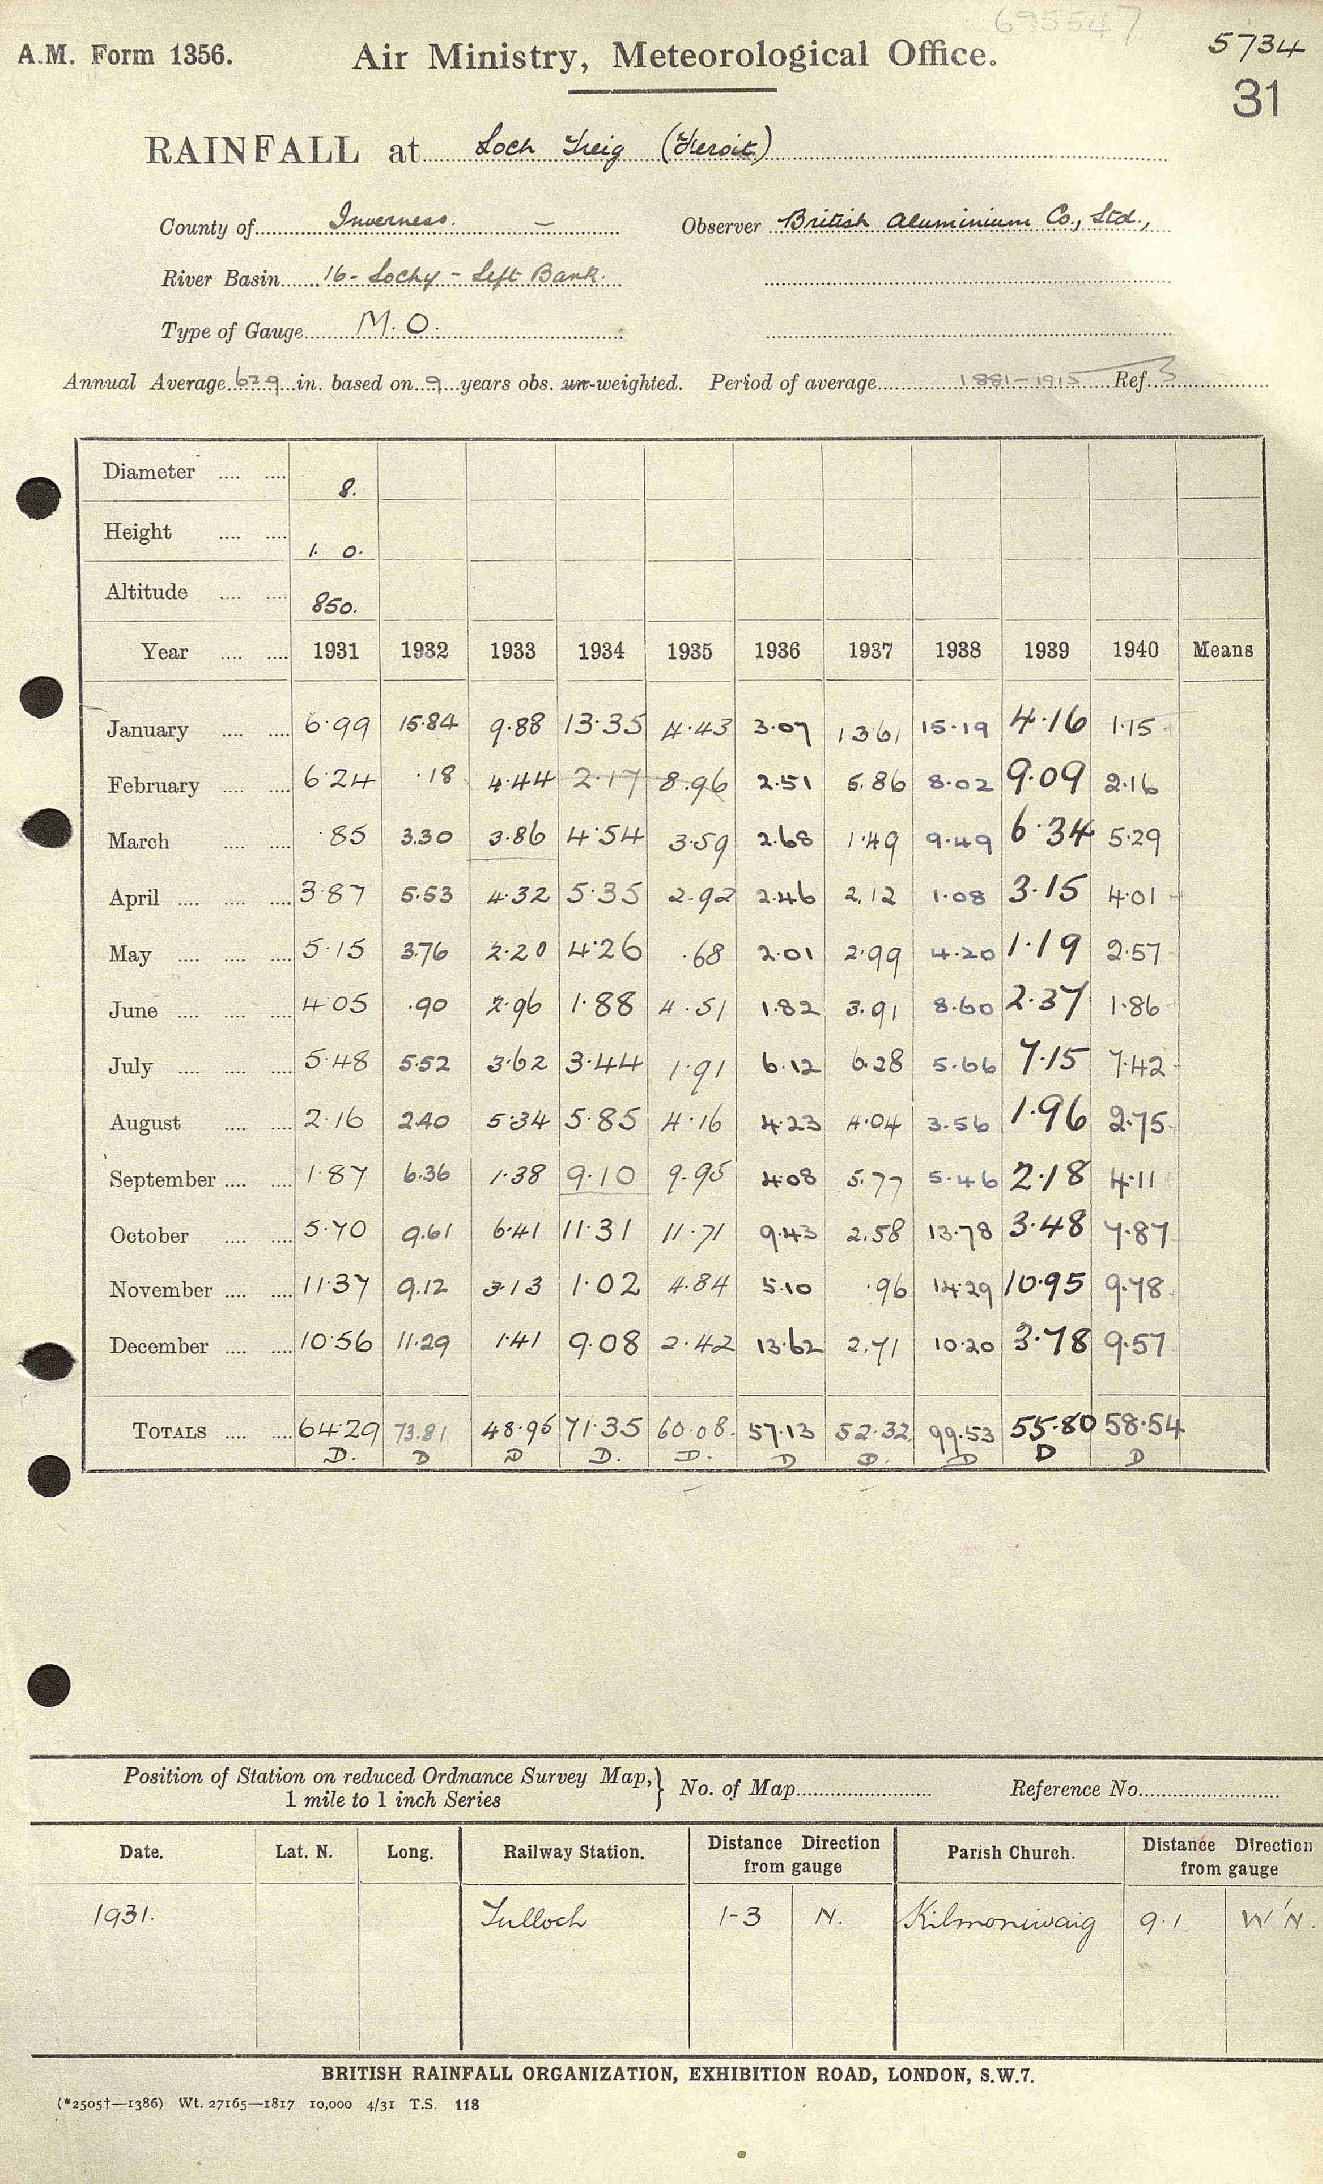 695547
A.M. Form 1356. Air Ministry, Meteorological Office. 5734
31
RAINFALL at Loch Treig
County of Inverness. – Observer British Aluminium Co., Ltd.,
River Basin 16 - Lochy - Left Bank.
Type of Gauge M. O.
Annual Average in. based on 9 years obs. un-weighted. Period of average 1881-1915 Ref. 3
Diameter 8.
Height 1. 0.
Altitude 850.
Year 1931 1932 1933 1934 1935 1936 1937 1938 1939 1940 Means
January 6.99 15.84 9.88 13.35 4.43 3.07 13.61 15.19 4.16 1.15
February 6.24 .18 4.44 2.17 8.96 2.51 5.86 8.02 9.09 2.16
March .85 3.30 3.86 4.54 3.59 2.68 1.49 9.49 6.34 5.29
April 3.87 5.53 4.32 5.35 2.92 2.46 2.12 1.08 3.15 4.01
May 5.15 3.76 2.20 4.26 .68 2.01 2.99 4.20 1.19 2.57
June 4.05 .90 2.96 1.88 4.51 1.82 3.91 8.60 2.37 1.86
July 5.48 5.52 3.62 3.44 1.91 6.12 6.28 5.66 7.15 7.42
August 2.16 2.40 5.34 5.85 4.16 4.23 4.04 3.56 1.96 2.75
September 1.87 6.36 1.38 9.10 9.95 4.08 5.77 5.46 2.18 4.11
October 5.70 9.61 6.41 11.31 11.71 9.43 2.58 13.78 3.48 7.87
November 11.37 9.12 3.13 1.02 4.84 5.10 .96 14.29 10.95 9.78
December 10.56 11.29 1.41 9.08 2.42 13.62 2.71 10.20 3.78 9.57
TOTALS 64.29 73.81 48.95 71.35 60.08 57.13 52.32 99.53 55.80 58.54
D. D D D. D. D D. D D D
Position of Station on reduced Ordnance Survey Map, } No. of Map Reference No.
1 mile to 1 inch Series
Date. Lat. N. Long. Railway Station. Distance Direction from gauge Parish Church. Distance Direction from gauge
1931. Tulloch 1-3 N. Kilmoniwaig 9.1 W'N.
BRITISH RAINFALL ORGANIZATION, EXHIBITION ROAD, LONDON, S.W.7.
(*2505†—1386) Wt. 27165—1817 10,000 4/31 T.S. 118